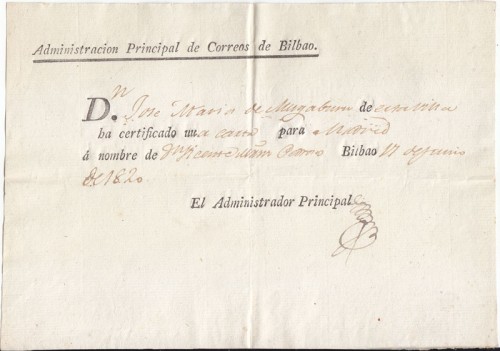 Administracion Principal de Correos de Bilbao.
D.n Jose Maria de de esta villa
ha certificado una carta para Madrid
á nombre de Dn Vicente Bilbao 17 de Junio
de 1820
El Administrador Principal